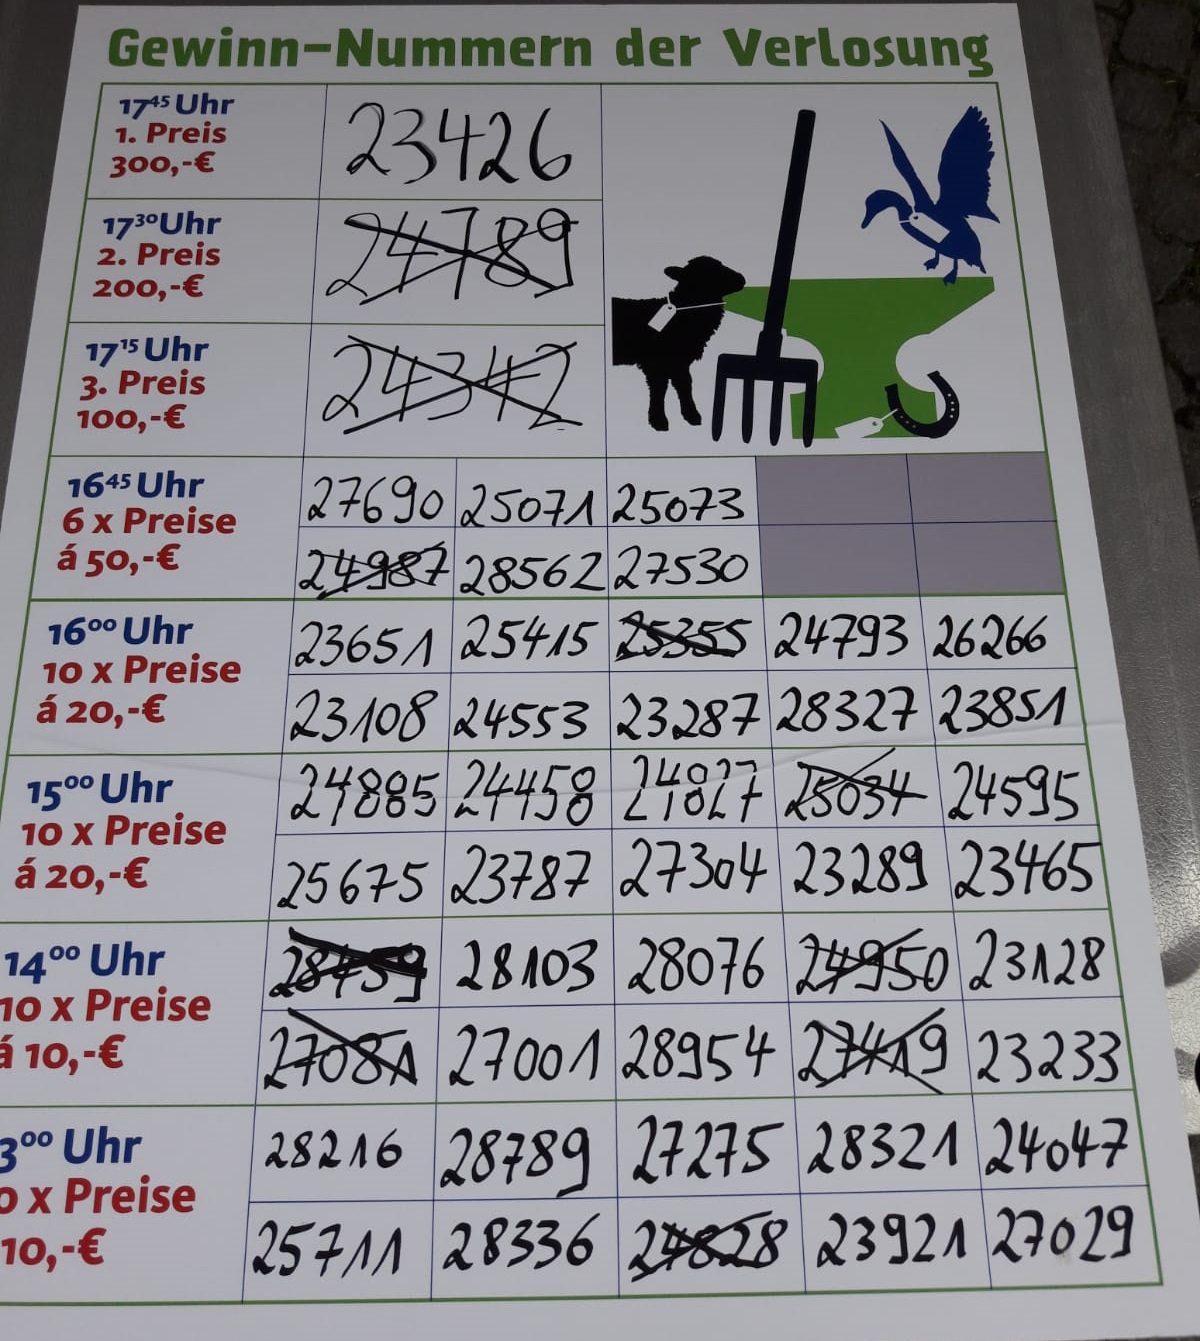 Gewinn-Nummern der Verlosung
17⁴⁵ Uhr
1. Preis
300,-€
23426
17³⁰ Uhr
2. Preis
200,-€
24789
17¹⁵ Uhr
3. Preis
100,-€
24342
16⁴⁵ Uhr
6 x Preise
á 50,-€
27690 25071 25073
24987 28562 27530
16⁰⁰ Uhr
10 x Preise
á 20,-€
23651 25415 25355 24793 26266
23108 24553 23287 28327 23851
15⁰⁰ Uhr
10 x Preise
á 20,-€
24885 24458 24827 25034 24595
25675 23787 27304 23289 23465
14⁰⁰ Uhr
10 x Preise
á 10,-€
28103 28076 24950 23128
27081 27001 28954 27419 23233
3⁰⁰ Uhr
0 x Preise
10,-€
28216 28789 27275 28321 24047
25711 28336 24828 23921 27029